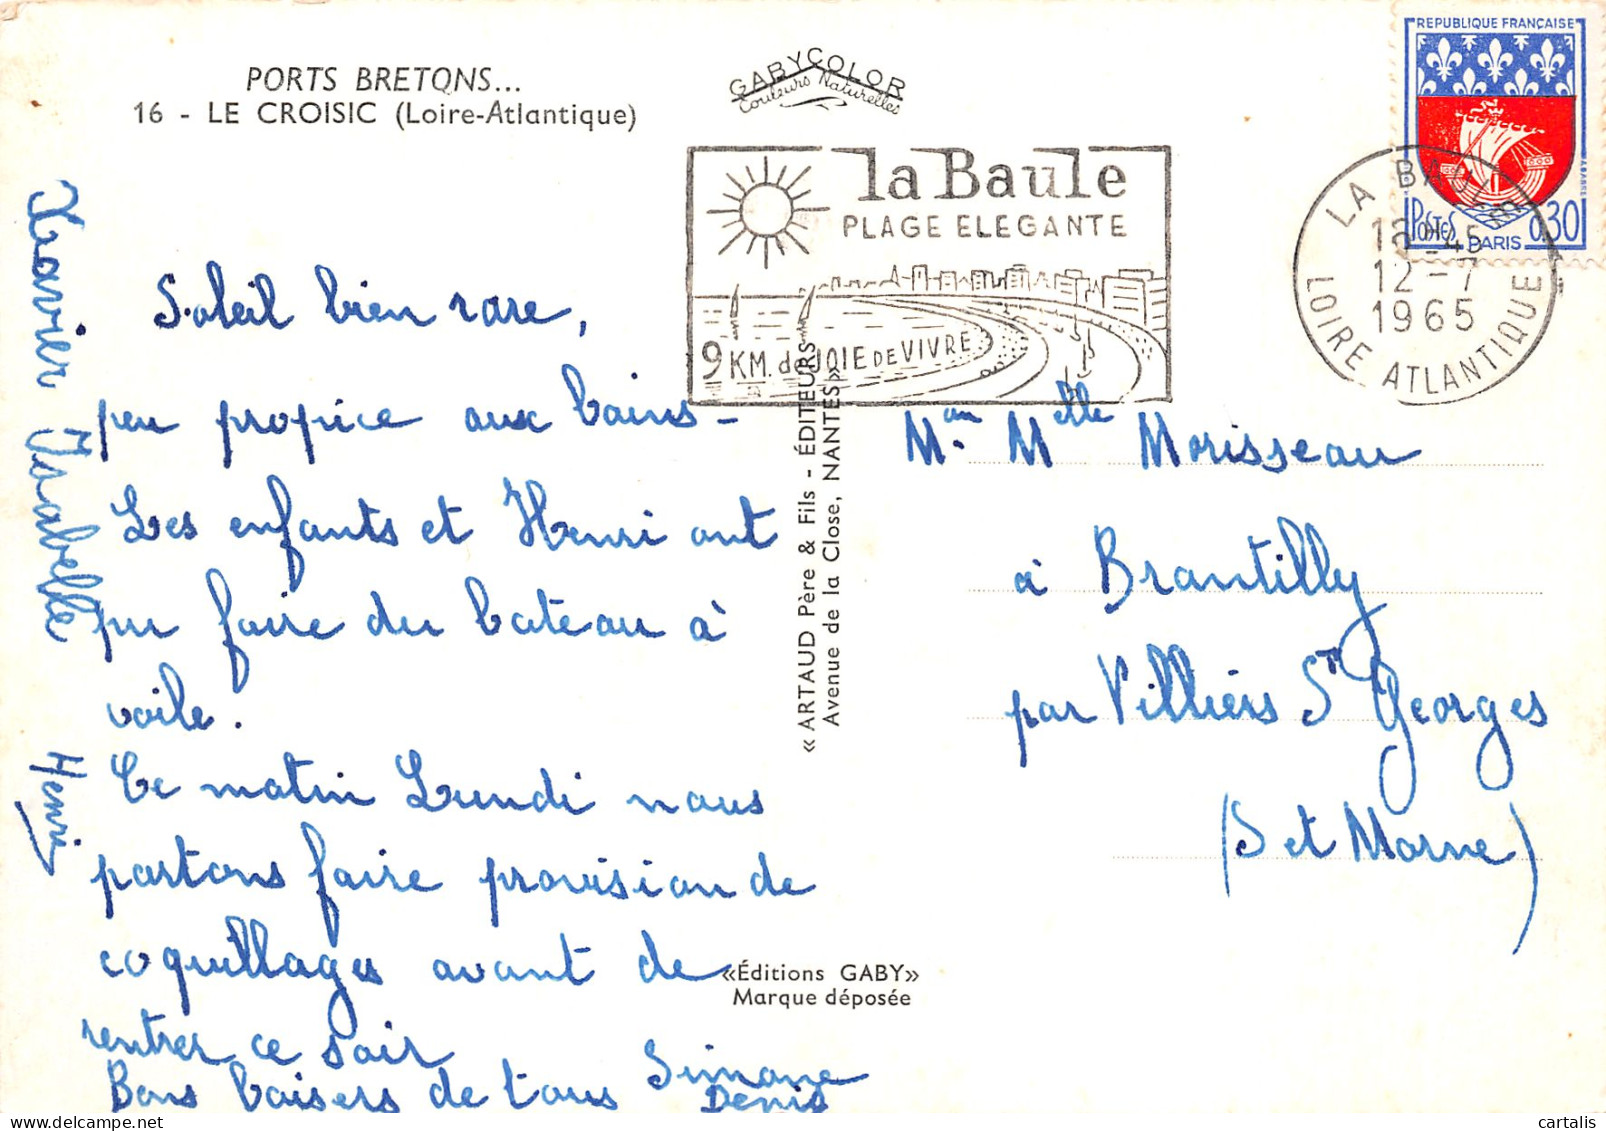 PORTS BRETONS...
16 - LE CROISIC (Loire-Atlantique)
GABYCOLOR
Couleurs Naturelles
la Baule
PLAGE ELEGANTE
9 KM. de JOIE DE VIVRE
REPUBLIQUE FRANÇAISE
POSTES PARIS 0,30
LA BAULE
45
12-7
1965
LOIRE ATLANTIQUE
Soleil bien rare,
peu propice aux bains -
Les enfants et Henri ont
pu faire du bateau à
voile.
Ce matin Lundi nous
partons faire provision de
coquillages avant de
rentrer ce soir
Bons baisers de tous Simone
Denis
Xavier Isabelle Henri
« ARTAUD Père & Fils - ÉDITEURS
Avenue de la Close, NANTES »
«Éditions GABY»
Marque déposée
Melle Morisseau
à Brantilly
par Villiers St Georges
(S et Marne)
cartalis